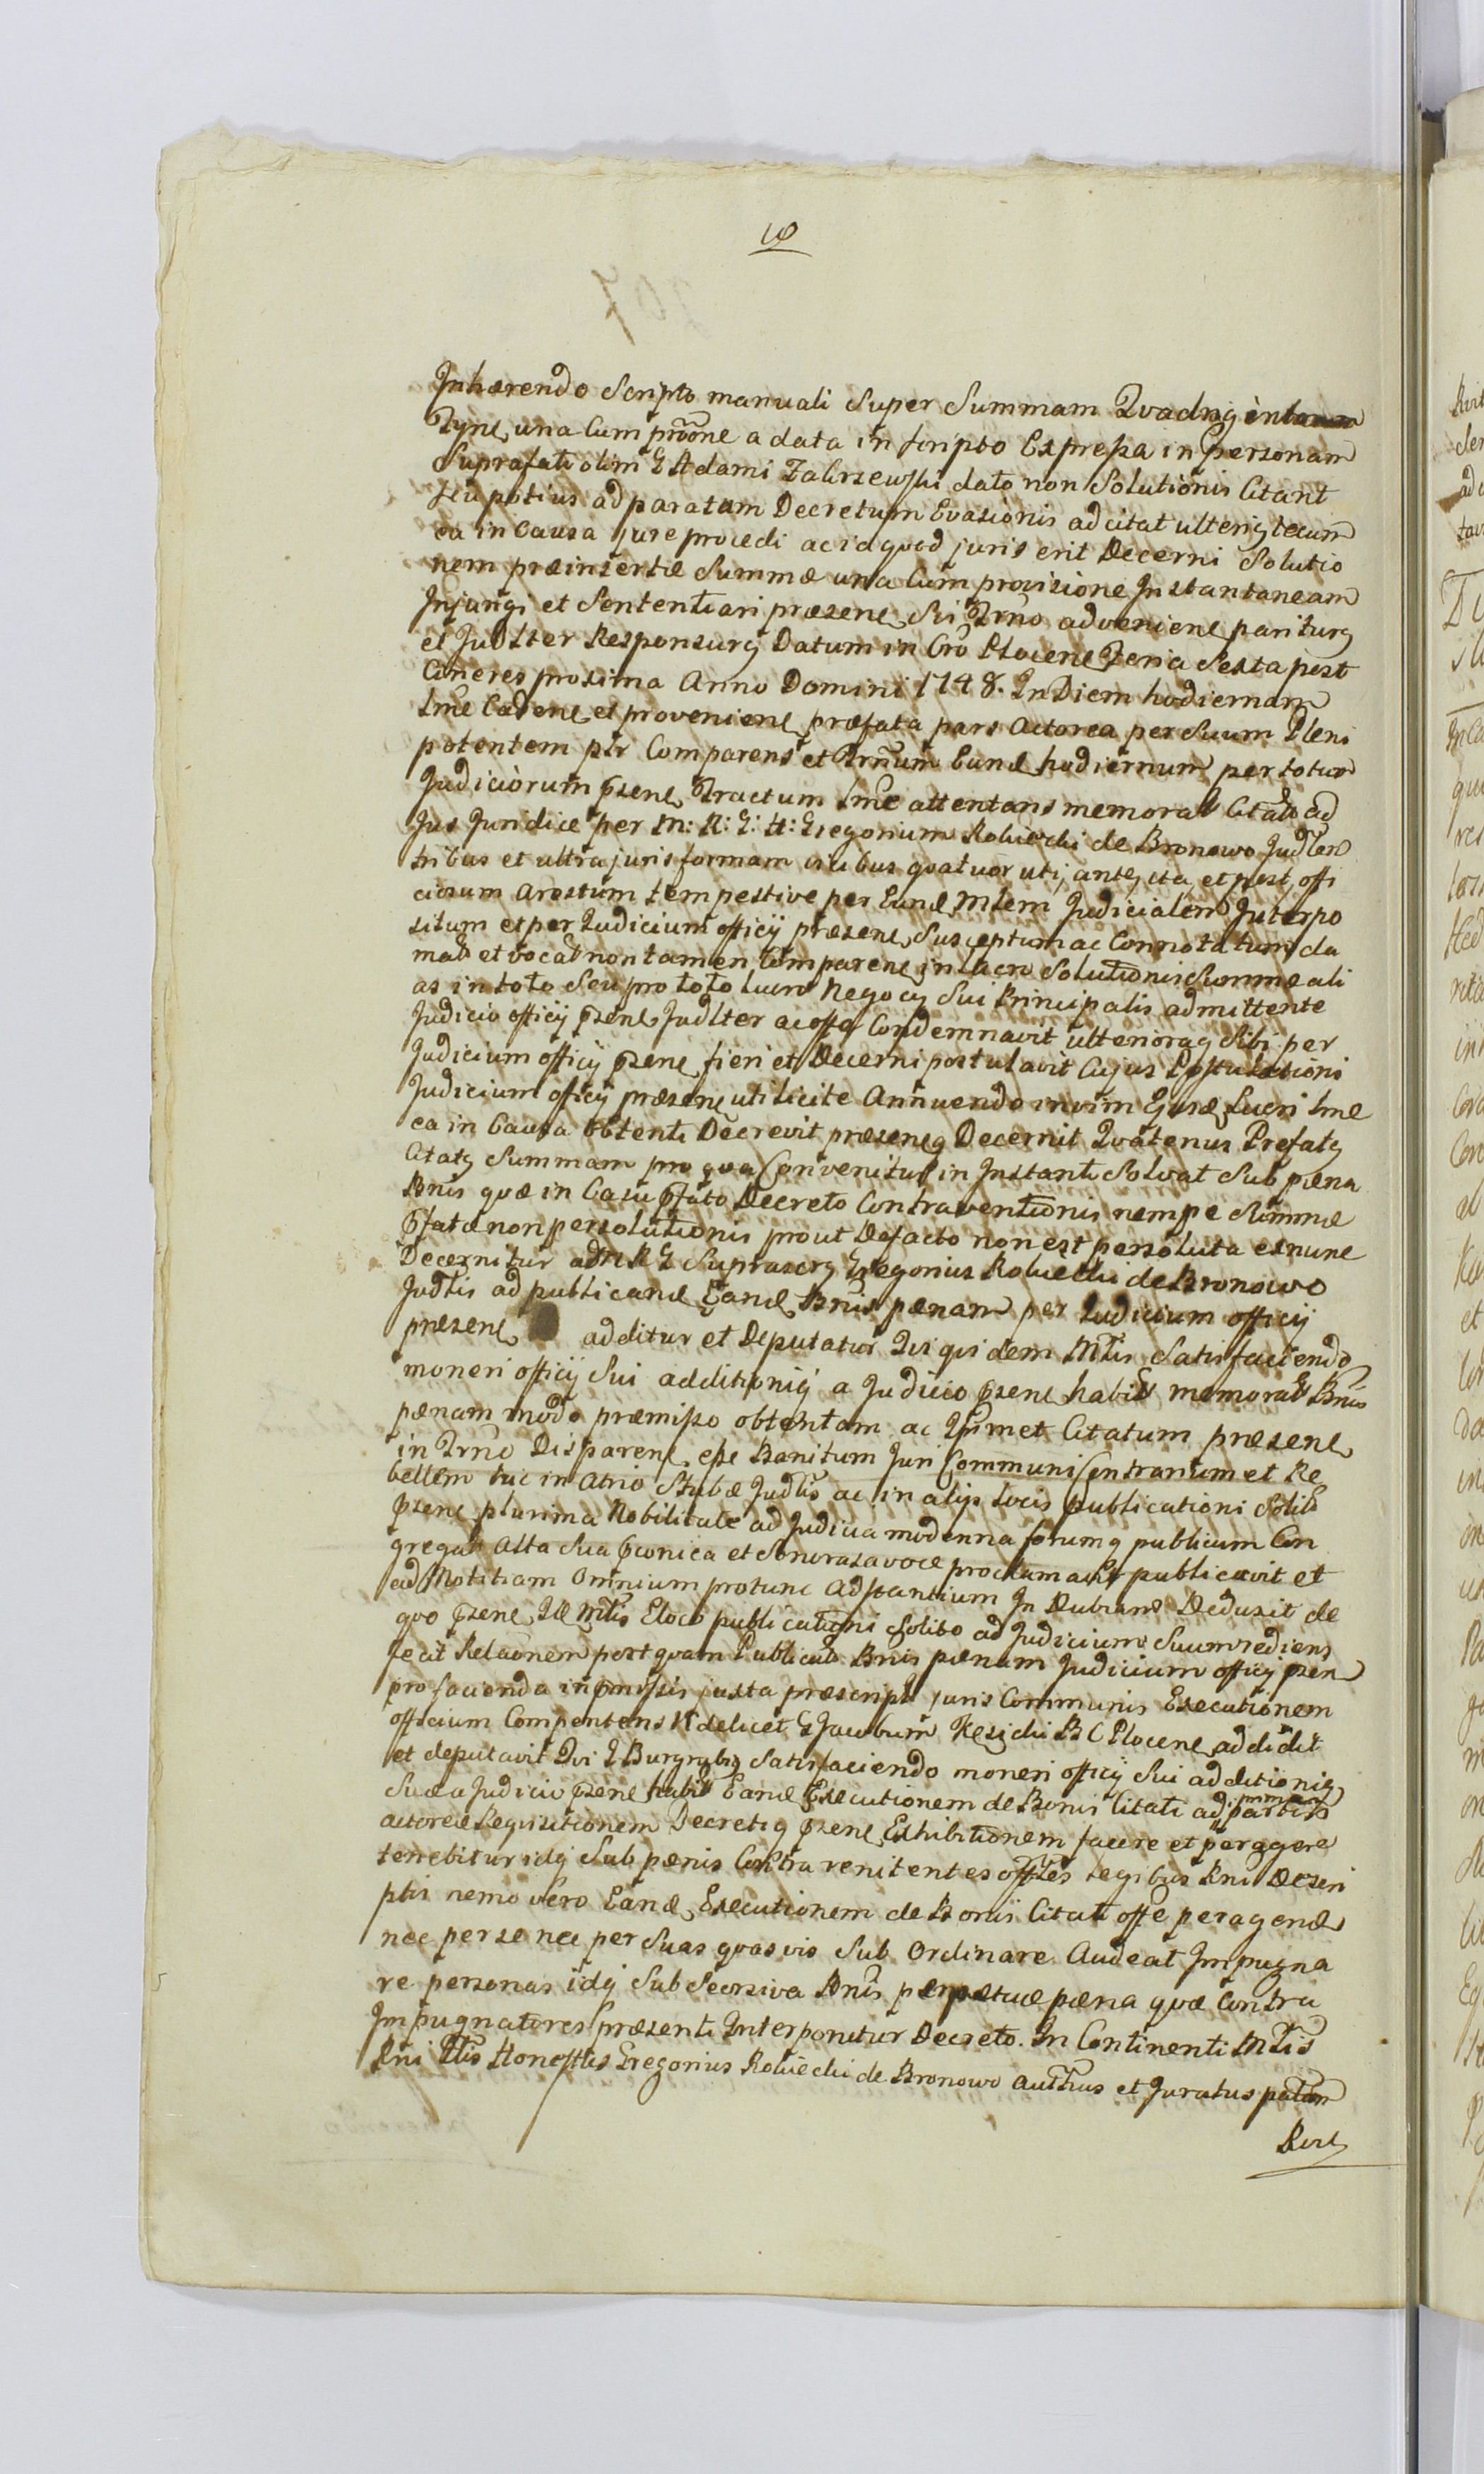 10
Inhærendo Scripto manuali Super Summam Qvadringènta
Tÿne, una Cum proõne a data in scripto Expressa in personam
Suprafati olim G Adami Zakrzewski dato non Solutionis Citant
seu potius ad paratam Decretum Evasionis ad citat ulteriq tecum
ea in Causa jure procedi ac id qvod juris erit Decerni Solutio
nem præinsertæ Summæ una Cum provisione Instantaneam
Injungi et Sententiari præsene, Sis Trno adveniene pariturq
et Judlter Responsurq Datum in Cro Plocene Feria Sexta post
Cineres proxima Anno Domini 1748. In Diem hodiernam
Lme Cadene, et proveniene, præfata pars Actorea per Suum Pleni
potentem ptr Comparens et Trnum Eund hodiernum per totum
Judiciorum pzene, Tractum lme attentans memorat Citato ad
Jus Juridice per M: R: G: H: Gregorium Roluechi de Bronowo Judlem
tribus et ultra juris formam vicibus qvatuor uti, anteq, ita, et post, offi
ciosum Arestum tempestive per Eund, Mlem Judicialem Interpo
situm et per Judicium officij præsene, Susceptum ac Connotatum cla
mato et vocato non tamen Comparene in lucro Solutionis Summæ ali
as in toto Seu pro toto lucro Negocij Sui Principalis admittente
Judicio officij pzene, Judlter ac offa Condemnavit ulterioraq Sibi per
Judicium officij pzene, fieri et Decerni postulavit Cujus Postulationi
Judicium officij præsene uti licite Annuendo in vim Ejusd, Lucri lme
ea in Causa obtenti Decrevit præseneq Decernit Qvatenus Prefatq
Citatq Summam pro qva Convenitur in Instanti Solvat Sub pæna
Bnis qvæ in Casu pfato Decreto Contraventionis nempe Summæ
pfatæ non persolutionis prout Defacto non est persoluta exnunc
Decernitur ad M R G Suprascrq Gregorius Roluechi de Bronowo
Judlis ad publicand Eand, Bnis pænam per Judicium officij
præsene additur et Deputatur Qui qvidem Mlis Satisfaciendo
moneri officij Sui additioniq a Judicio pzene, habit memorat Bnis
pænam modo præmisso obtentam ac Ipsimet Citatum præsene,
in Trno Disparene, esse Banitum Juri Communi Contrarium et Re
bellem huc in Atrio Stubæ Judlis ac in alijs locis publicationi Solito
pzene, plurima Nobilitate ad Judicia moderna forumq publicum Con
gregato Alta Sua pconica et Sonorosa voce proclamavit publicavit et
ad Notitiam Omnium protunc Adstantium In Dubiam Deduxit de
qvo pzene, Ille Mlis Eloco publicationi Solito ad Judicium Suum rediens
fecit Relaõnem post qvam Publicato Bnis pænam Judicium officij pzen
pro facienda in pmissis juxta præscript juris Communis Executionem
officium Compentens Videlicet G Jacobum Kesichi B C Plocene, addidit
et deputavit Qui G Burgrabiq Satisfaciendo moneri officij Sui additioniq
Suæ a Judicio pzene habit Eand Executionem de Bonis Citati ad primam partis
actoreæ Reqvisitionem Decretiq pzene, Exhibitionem facere et peragere
tenebitur idq Sub pænis Contra renitentes offles Legibus Rni Descri
ptis nemo vero Eand, Executionem de Bonis Citati offe peragend,
nec per se nec per Suas qvasvis Sub Ordinare Audeat Impugna
re personas idq Sub Seorsiva Bnis perpetuæ pæna qvæ Contra
Impugnatores præsenti Interponitur Decreto. In Continenti Mlis
Rni Glis Honesttis Gregorius Roluechi de Bronowo authcus et Juratus palam